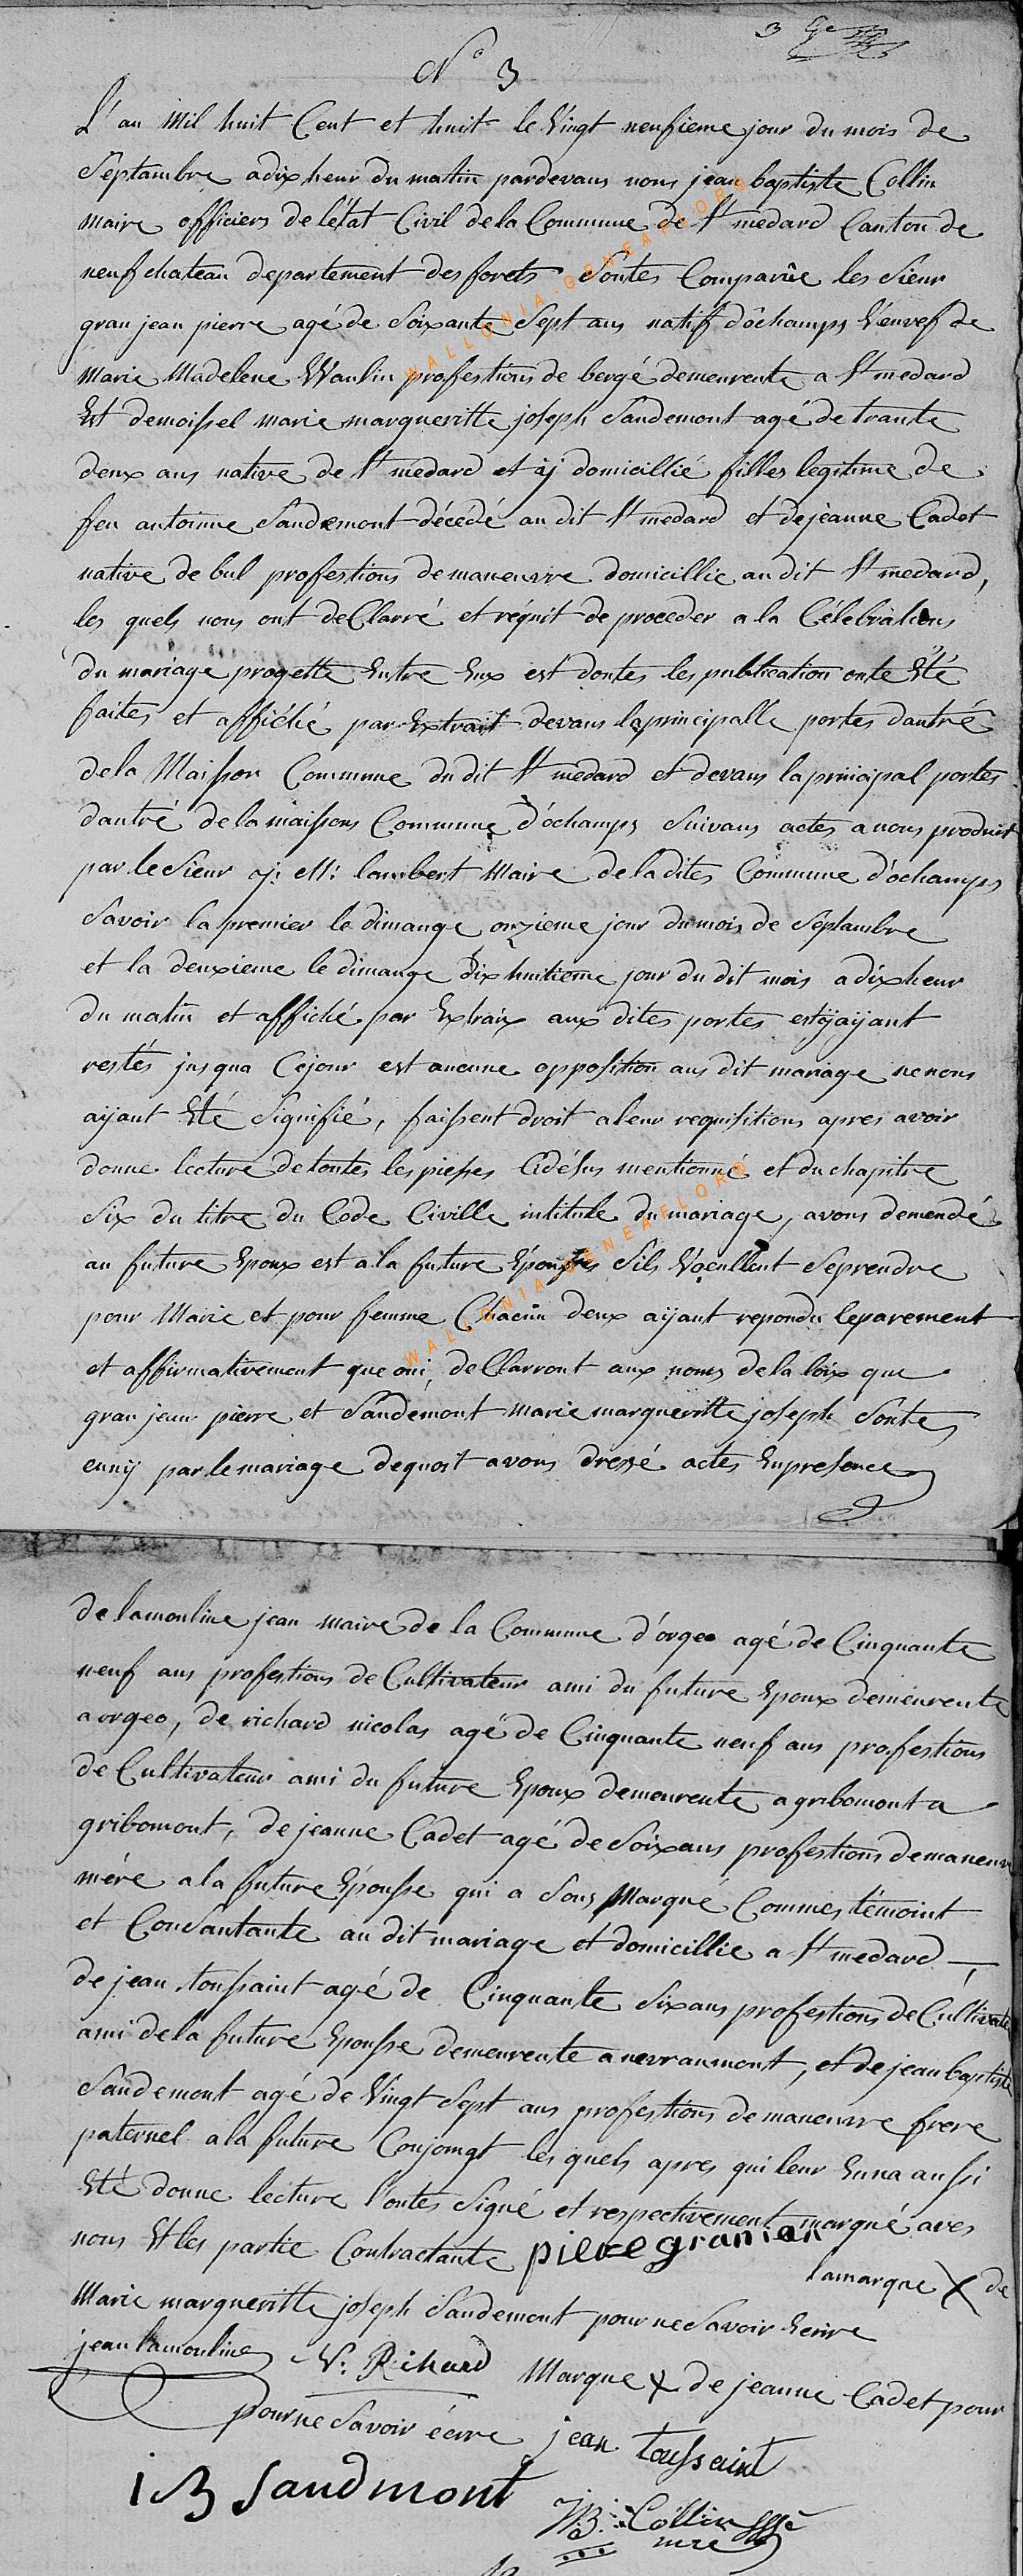 3
N° 3
L'an mil huit Cent et huit le Vingt neufieme jour du mois de
Septambre a dix heur du matin pardevans nous jean baptiste Collin
maire officiers de létat Civil de la Commune de St medard Canton de
neufchateau departement des forets Sontes Comparûe les Sieur
gran jean pierre agé de Soixante Sept ans natif dôchamps Veuvef de
Marie Madelene Waulin profestions de bergé demeurente a St medard
Est demoissel marie margueritte joseph Sandemont agé de trante
deux ans native de St medard et ij domicillié filles legitime de
feu antoinne Sandemont décédé au dit St medard et de jéanne Cadet
native de bul profestions demaneuvre domicillie au dit St medard,
les quels nous ont deClarré et réquit de proceder a la Célebrations
du mariage progette Entre Eux est dontes les publication onte Eté
faites et affiché par Extrait devans la principalle portes dantré
de la Maisson Commune du dit St medard et devans la principal portes
dantré de la maissons Commune d'ôchamps Suivans actes a nous produit
par le Sieur lambert Maire de la dites Commune d'ôchamps
Savoir la premier le dimange onzieme jour du mois de Septambre
et la deuxieme le dimange dix huitieme jour du dit mois a dix heur
du matin et affiché par Extraix aux dites portes est ÿ aÿant
restés jusqua Ce jour est aucune opposition aus dit mariage ne nous
aÿant Eté Signifié, faissent droit a leur requisitions apres avoir
donne lecture de toutes les piesses Cidésus mentionné et du chapitre
Six du titre du Code Civille intitule du mariage, avons demendé
au future Epoux est a la future Epousses Sils Voeullent Seprendre
pour Marie et pour femme Chacun deux aÿant repondu Separement
et affirmativement que oui, deClarront aux noms de la loix que
gran jean pierre et Sandemont marie margueritte joseph Sontes
unÿ par le mariage dequoit avons dressé actes En presence
de lamouline jean maire de la Commune d'orgeo agé de Cinquante
neuf ans profestions de Cultivateur ami du future Epoux demeurente
a orgeo, de richard nicolas agé de Cinquante neuf ans profestions
de Cultivateur ami du future Epoux demeurente a gribomont a
gribomont, de jeanne Cadet agé de Soix ans profestions demaneuvre
mére a la future Epousse qui a Sous Marqué Commes témoint
et Consantante au dit mariage et domicillie a St medard
de jean toussaint agé de Cinquante Six ans profestions de Cultivate
ami de la future Epousse demeurente a nevraumont, et de jean baptiste
Sandemont agé de Vingt Sept ans profestions de maneuvre frere
paternel a la future Conjoingt les quels apres qui leur Enna aussi
Eté donne lecture l'ontes Signé et respectivement marqué aves
nous Et les partie Contractante pierre granian
la marque X de
Marie margueritte joseph Sandemont pour ne Savoir Ecrire
jean lamouline N. Richard Marque X de jeanne Cadet pour
pour ne Savoir écire jean toussaint
i B Sandmont
JB. Collin
mre
WALLONIA-GENEAFLORE
WALLONIA-GENEAFLORE